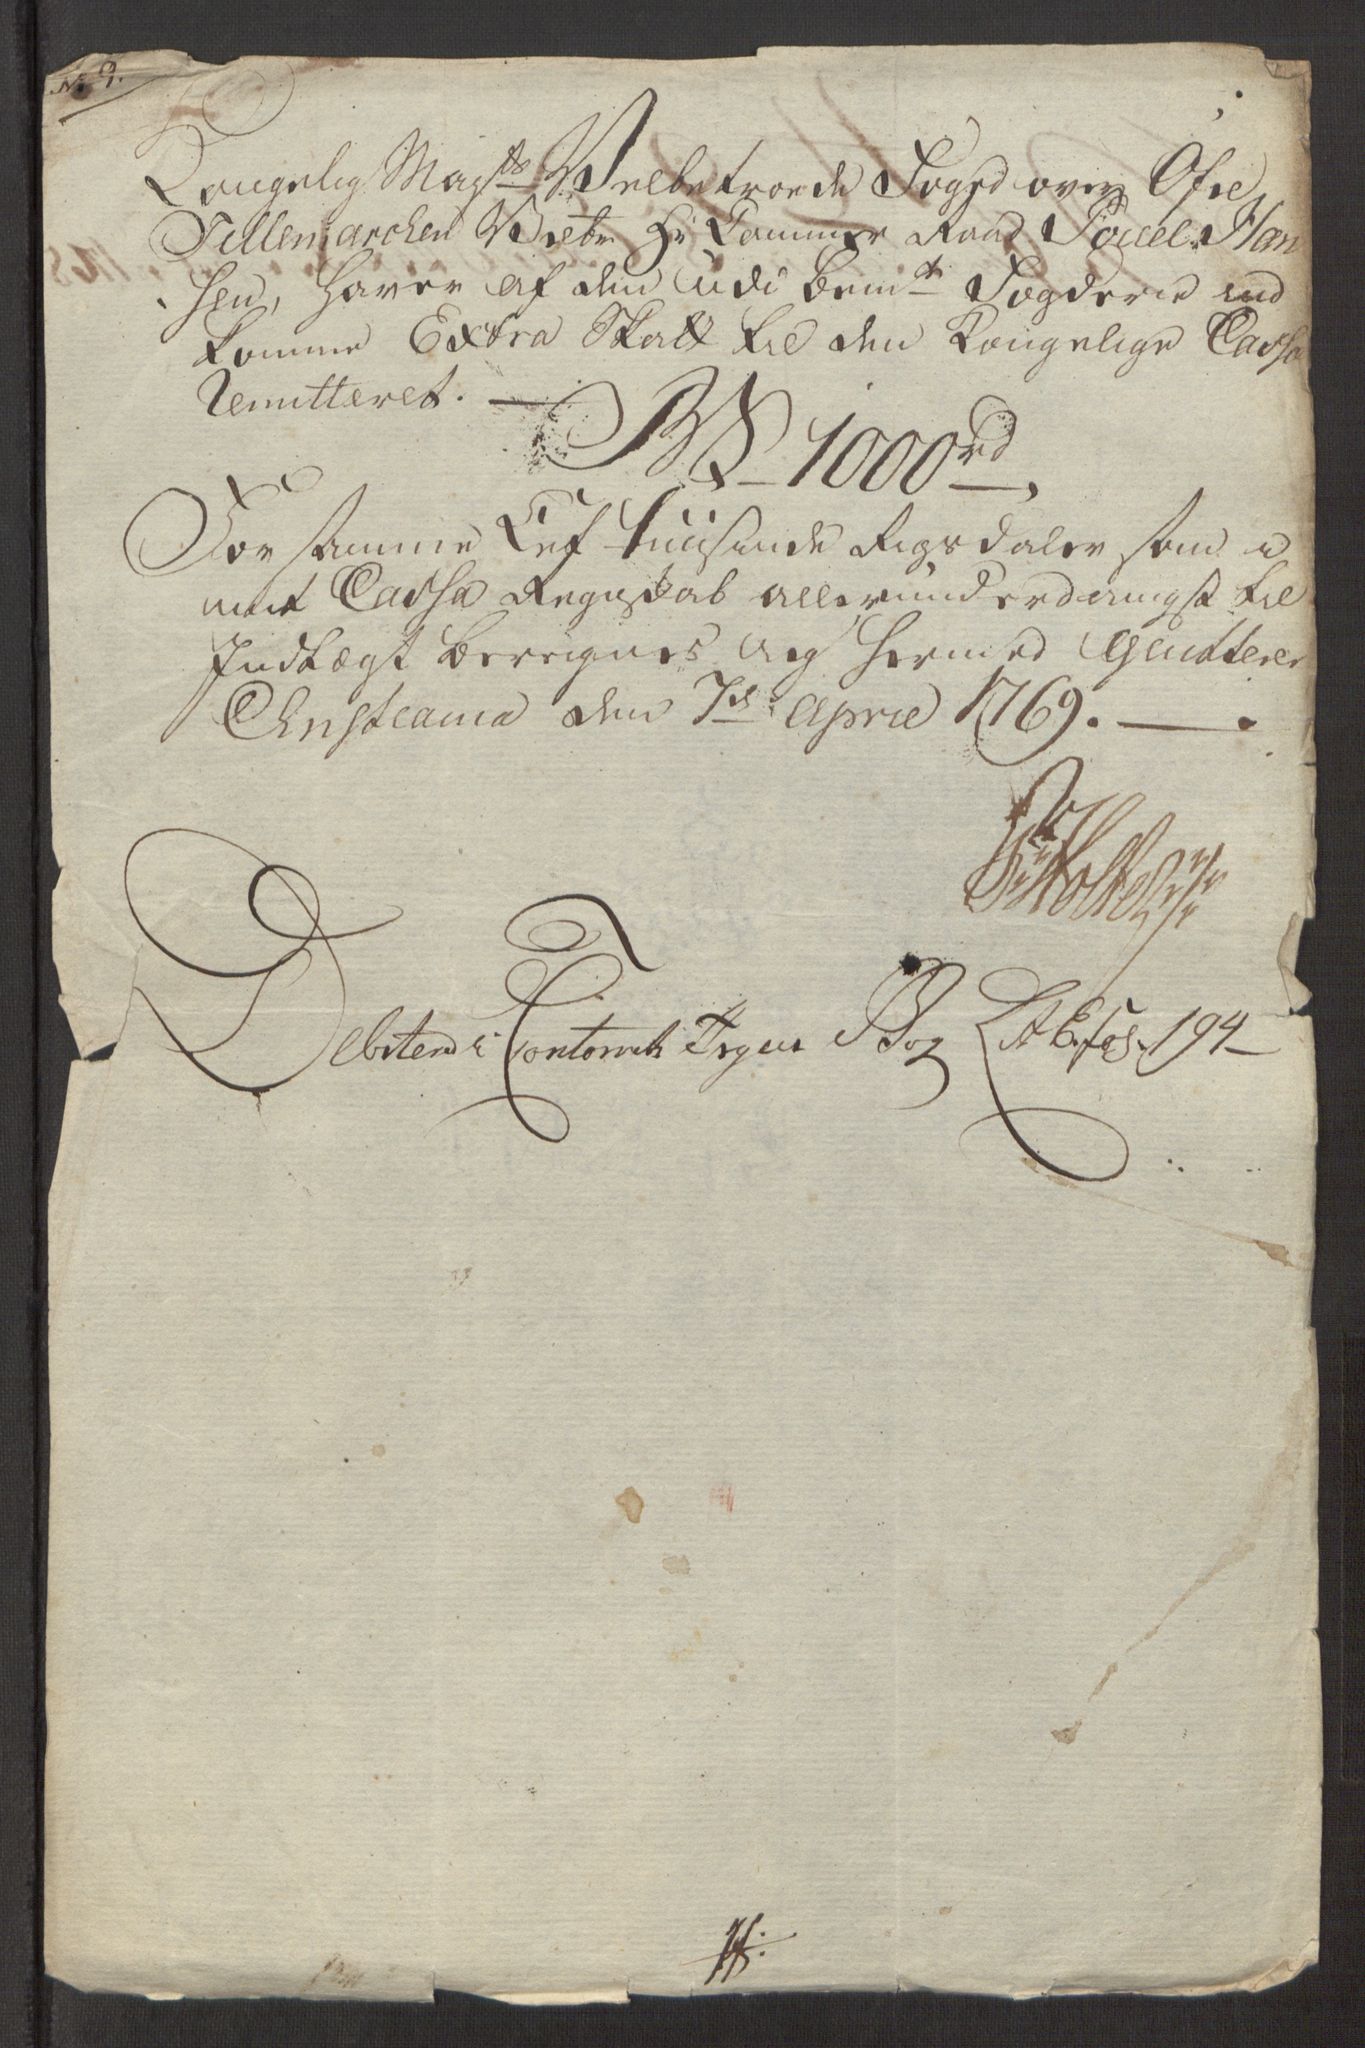 No 9.
Kongelig Mayts Velbetroede Foged over Öfre
Tellemarchen Velbr Hr Cammer Raad Povel Han
sen, Haver af den udi bemte Fogderie ind
komne Extra Skatt til den Kongelige Cassa
Remitteret. —
1000 rd
For samme Eet Tüüsinde Rigsdaler som i
mit Cassa Regnskab allerunderdanigst til
Indtægt beregnes ieg hermed Qvitterer
Christiania den 7de April 1769. —
Holte
Debiteret i Contoirets Bog Litr fol. 194 —